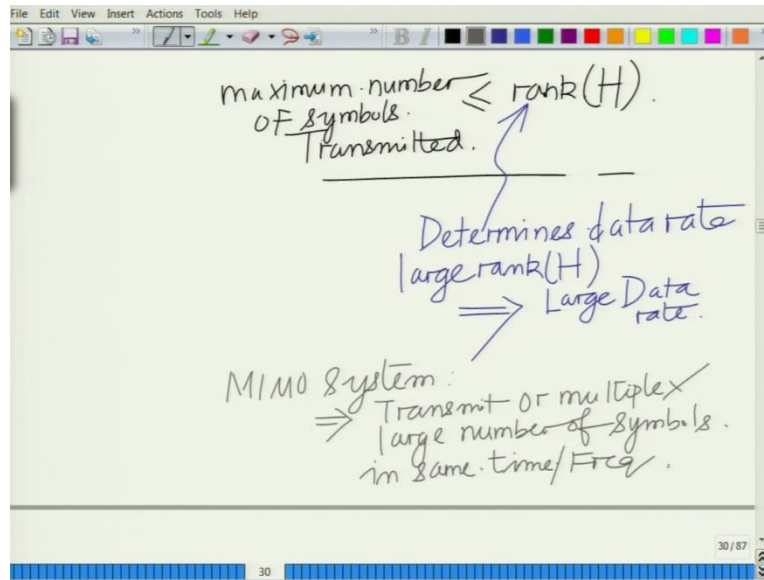 File Edit View Insert Actions Tools Help
B I
maximum number ≤ rank(H).
of symbols.
Transmitted.
Determines data rate
large rank(H)
⇒ Large Data
rate.
MIMO System:
⇒ Transmit or multiplex
large number of symbols.
in same time/Freq.
30/87
30